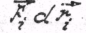 F⃗ᵢ d r⃗ᵢ